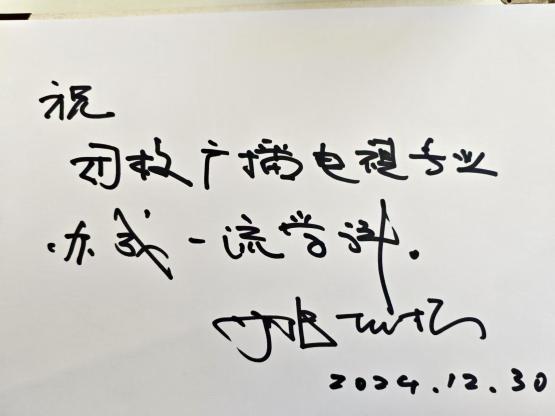 祝
母校广播电视专业
办成一流学科.
2024.12.30